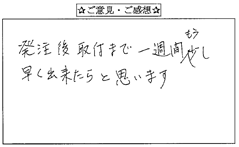 ☆ご意見・ご感想☆
発注後取付まで一週間もう少し
早く出来たらと思います